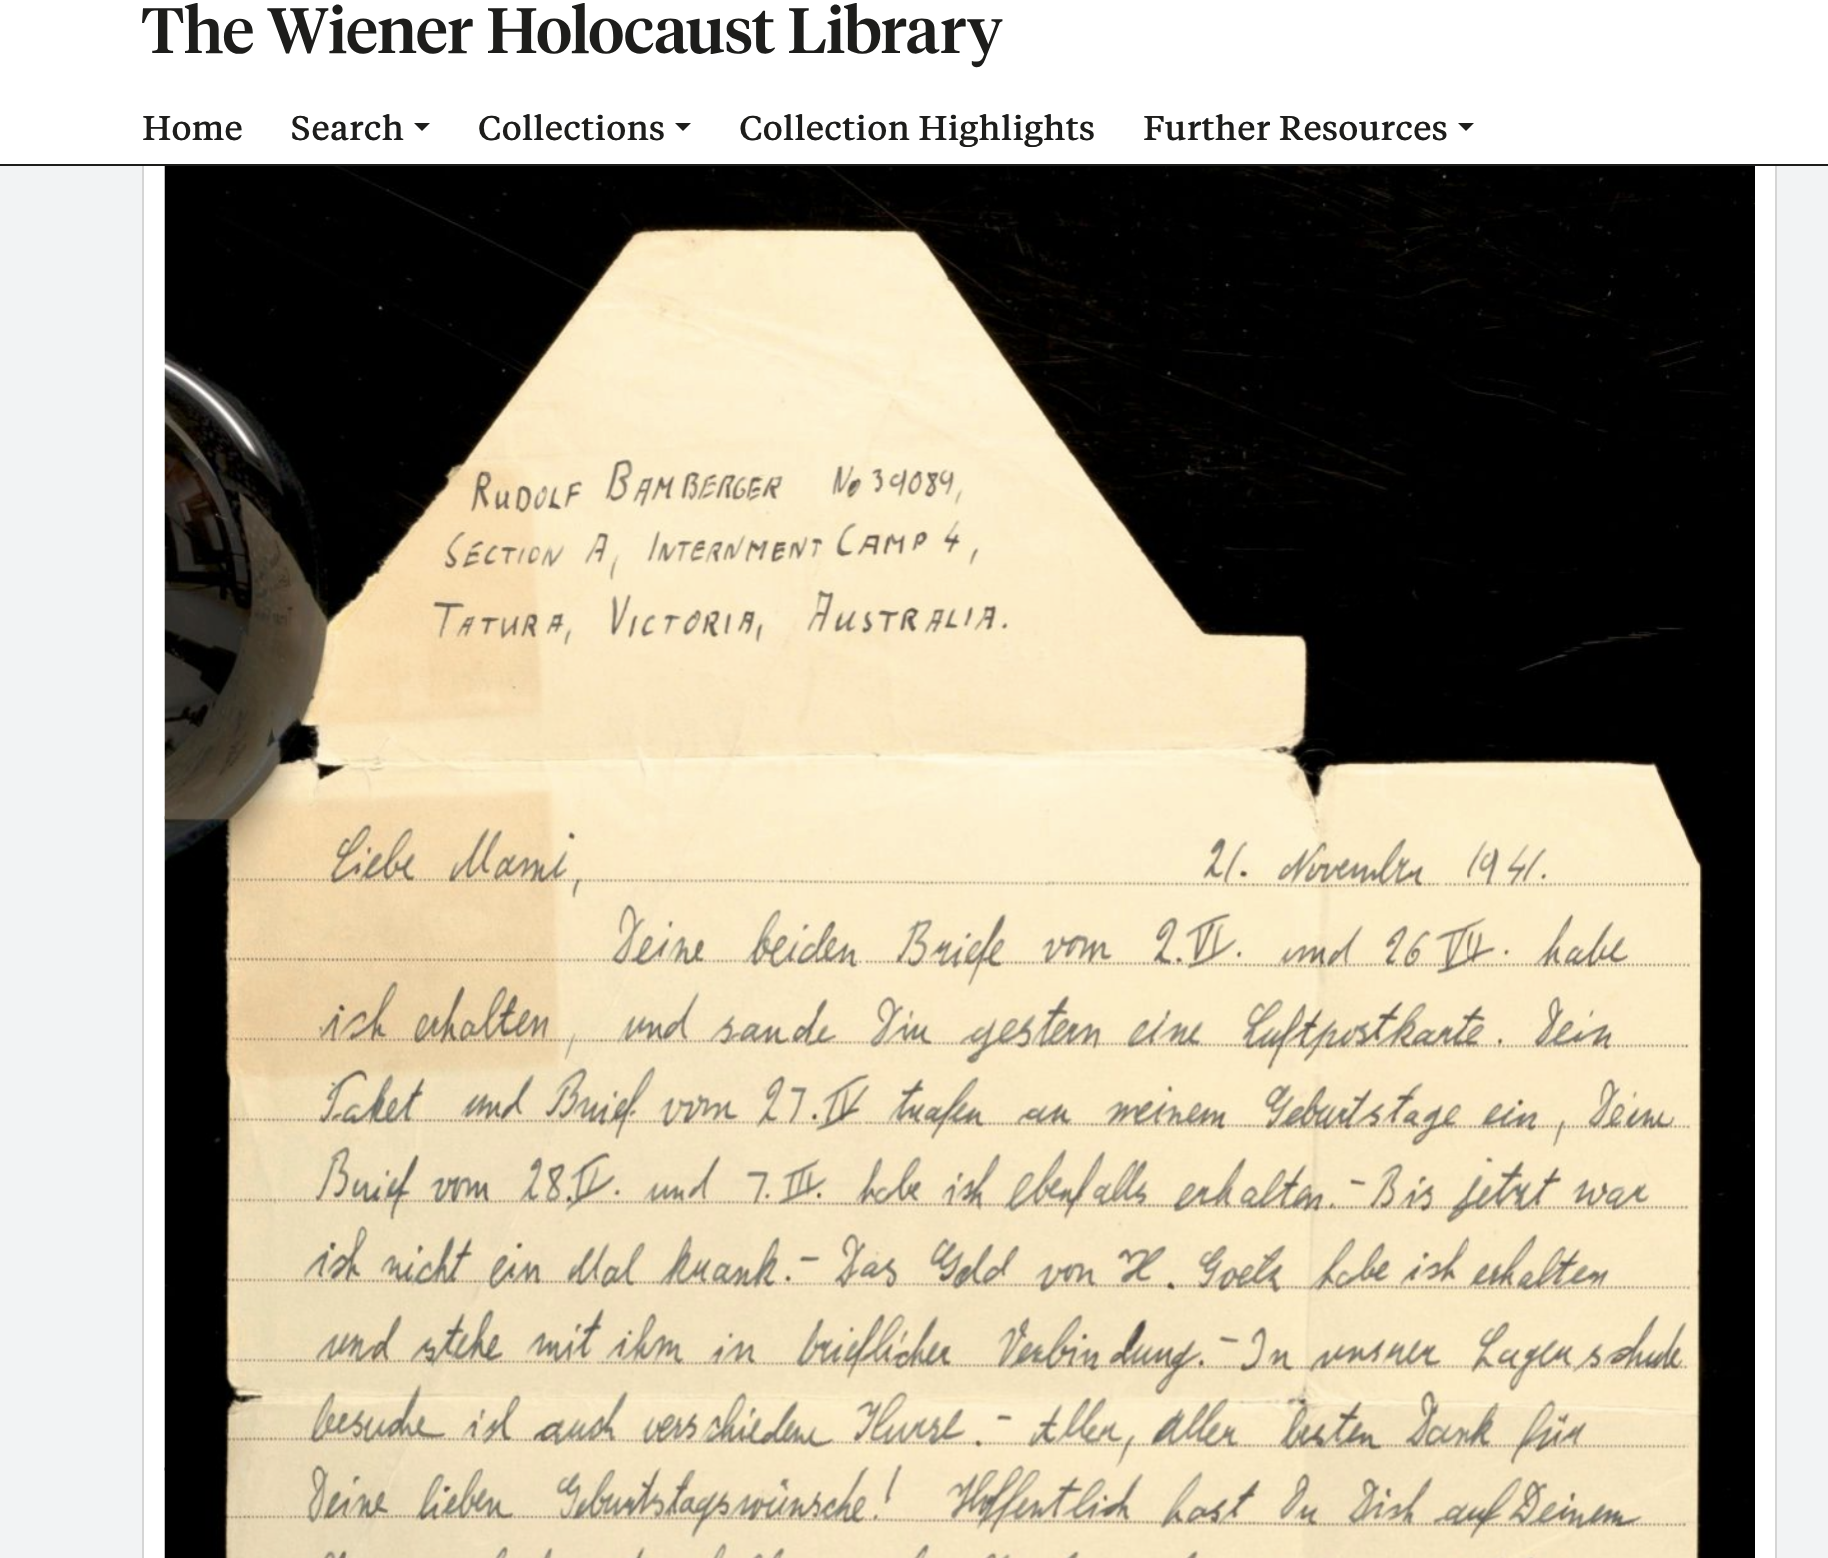 The Wiener Holocaust Library
Home Search Collections Collection Highlights Further Resources
RUDOLF BAMBERGER No 39089,
SECTION A, INTERNMENT CAMP 4,
TATURA, VICTORIA, AUSTRALIA.
Liebe Mami, 21. November 1941.
Deine beiden Briefe vom 2.VI. und 26 VII. habe
ich erhalten, und sande Dir gestern eine Luftpostkarte. Dein
Paket und Brief vom 27.IV trafen an meinem Geburtstage ein, Deine
Brief vom 28.II. und 7.III. habe ich ebenfalls erhalten.- Bis jetzt war
ich nicht ein Mal krank.- Das Geld von H. Goetz habe ich erhalten
und stehe mit ihm in brieflicher Verbindung.- In unsrer Lagerschule
besuche ich auch verschiedene Kurse.- Aller, aller besten Dank für
Deine lieben Geburtstagswünsche! Hoffentlich hast Du Dich auf Deinem